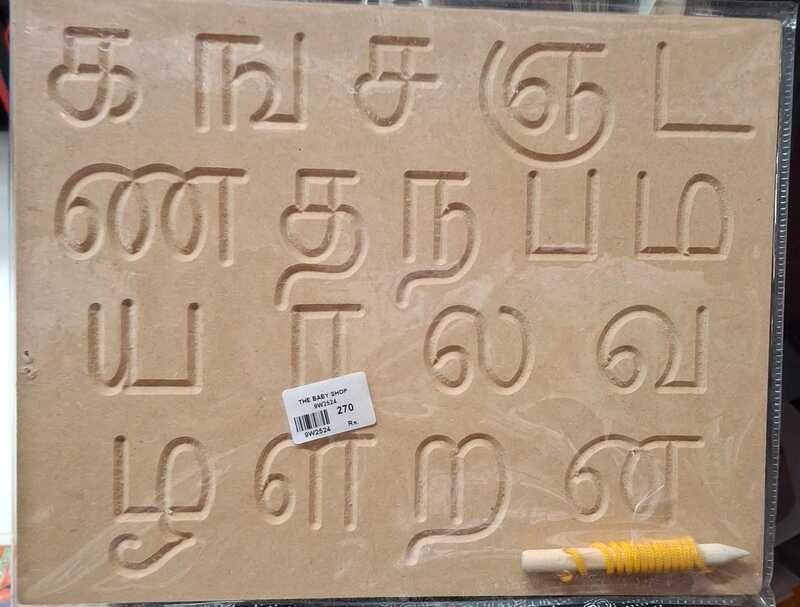 க ங ச ஞ ட
ண த ந ப ம
ய ர ல வ
THE BABY SHOP
9W2524
270
9W2524 Rs.
ழ ள ற ன